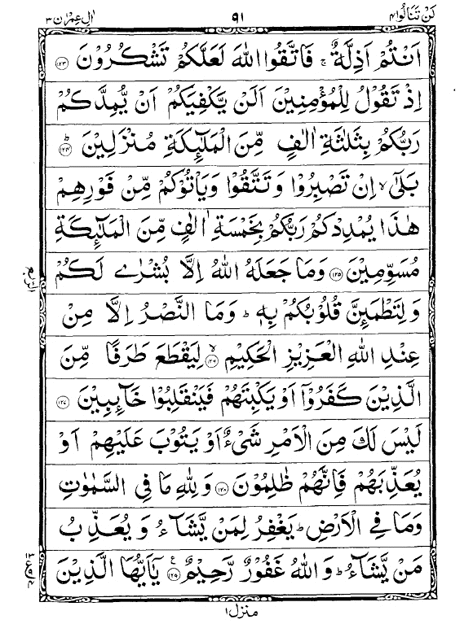 لن تنالوا ٤
٩١
اٰل عمرٰن ٣
اَنْتُمْ اَذِلَّةٌ ۚ فَاتَّقُوا اللّٰهَ لَعَلَّكُمْ تَشْكُرُوْنَ ﴿١٢٣﴾
اِذْ تَقُوْلُ لِلْمُؤْمِنِيْنَ اَلَنْ يَّكْفِيَكُمْ اَنْ يُّمِدَّكُمْ
رَبُّكُمْ بِثَلٰثَةِ اٰلٰفٍ مِّنَ الْمَلٰٓئِكَةِ مُنْزَلِيْنَ ؕ﴿١٢٤﴾
بَلٰٓى ۙ اِنْ تَصْبِرُوْا وَتَتَّقُوْا وَيَاْتُوْكُمْ مِّنْ فَوْرِهِمْ
هٰذَا يُمْدِدْكُمْ رَبُّكُمْ بِخَمْسَةِ اٰلٰفٍ مِّنَ الْمَلٰٓئِكَةِ
مُسَوِّمِيْنَ ﴿١٢٥﴾ وَمَا جَعَلَهُ اللّٰهُ اِلَّا بُشْرٰى لَكُمْ
وَلِتَطْمَئِنَّ قُلُوْبُكُمْ بِهٖ ؕ وَمَا النَّصْرُ اِلَّا مِنْ
عِنْدِ اللّٰهِ الْعَزِيْزِ الْحَكِيْمِ ۙ﴿١٢٦﴾ لِيَقْطَعَ طَرَفًا مِّنَ
الَّذِيْنَ كَفَرُوْۤا اَوْ يَكْبِتَهُمْ فَيَنْقَلِبُوْا خَآئِبِيْنَ ﴿١٢٧﴾
لَيْسَ لَكَ مِنَ الْاَمْرِ شَىْءٌ اَوْ يَتُوْبَ عَلَيْهِمْ اَوْ
يُعَذِّبَهُمْ فَاِنَّهُمْ ظٰلِمُوْنَ ﴿١٢٨﴾ وَلِلّٰهِ مَا فِى السَّمٰوٰتِ
وَمَا فِى الْاَرْضِ ؕ يَغْفِرُ لِمَنْ يَّشَآءُ وَيُعَذِّبُ
مَنْ يَّشَآءُ ؕ وَاللّٰهُ غَفُوْرٌ رَّحِيْمٌ ﴿١٢٩﴾ يٰۤاَيُّهَا الَّذِيْنَ
منزل ١